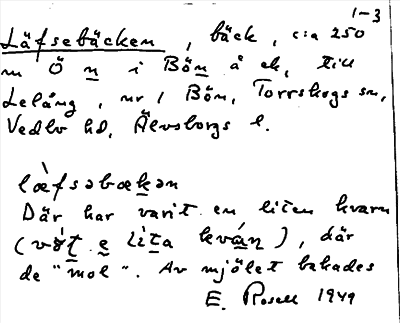 1-3
Läfsebäcken, bäck, c:a 250
m Ö n i Bön å ek, till
Lelång, nr 1 Bön, Torrskogs sn,
Vedbo hd, Älvsborgs l.
læ̀fsəbækən
Där har varit en liten kvarn
(vøt e lita kván), där
de "mol". Av mjölet bakades
E. Rosell 1949